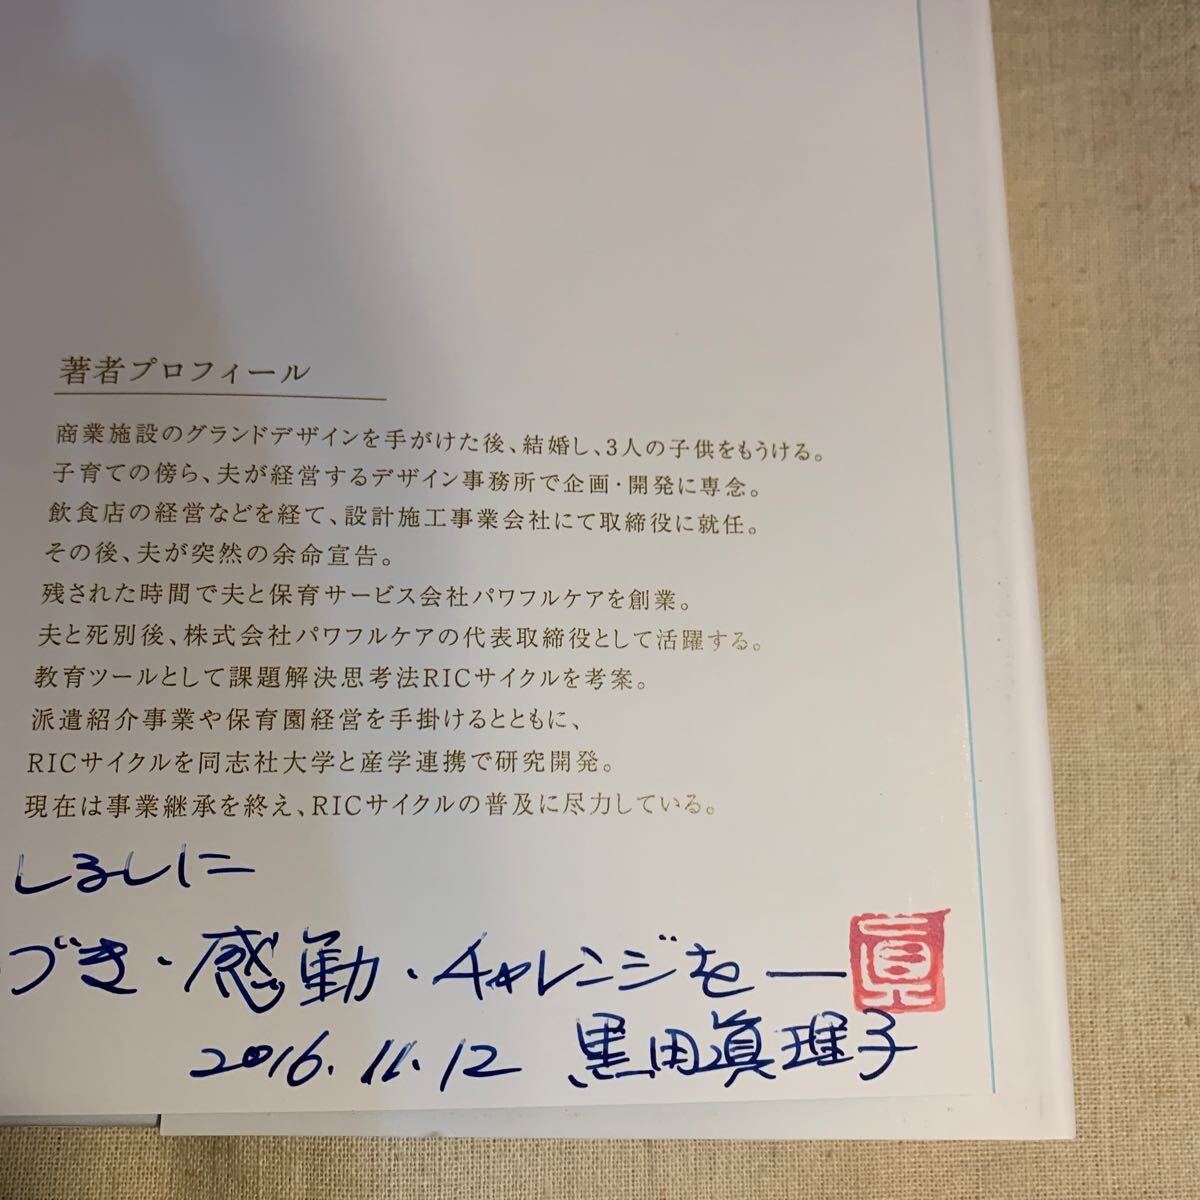 著者プロフィール
商業施設のグランドデザインを手がけた後、結婚し、3人の子供をもうける。
子育ての傍ら、夫が経営するデザイン事務所で企画・開発に専念。
飲食店の経営などを経て、設計施工事業会社にて取締役に就任。
その後、夫が突然の余命宣告。
残された時間で夫と保育サービス会社パワフルケアを創業。
夫と死別後、株式会社パワフルケアの代表取締役として活躍する。
教育ツールとして課題解決思考法RICサイクルを考案。
派遣紹介事業や保育園経営を手掛けるとともに、
RICサイクルを同志社大学と産学連携で研究開発。
現在は事業継承を終え、RICサイクルの普及に尽力している。
しるしに
づき・感動・チャレンジを一
眞
2016.11.12 黒田眞理子